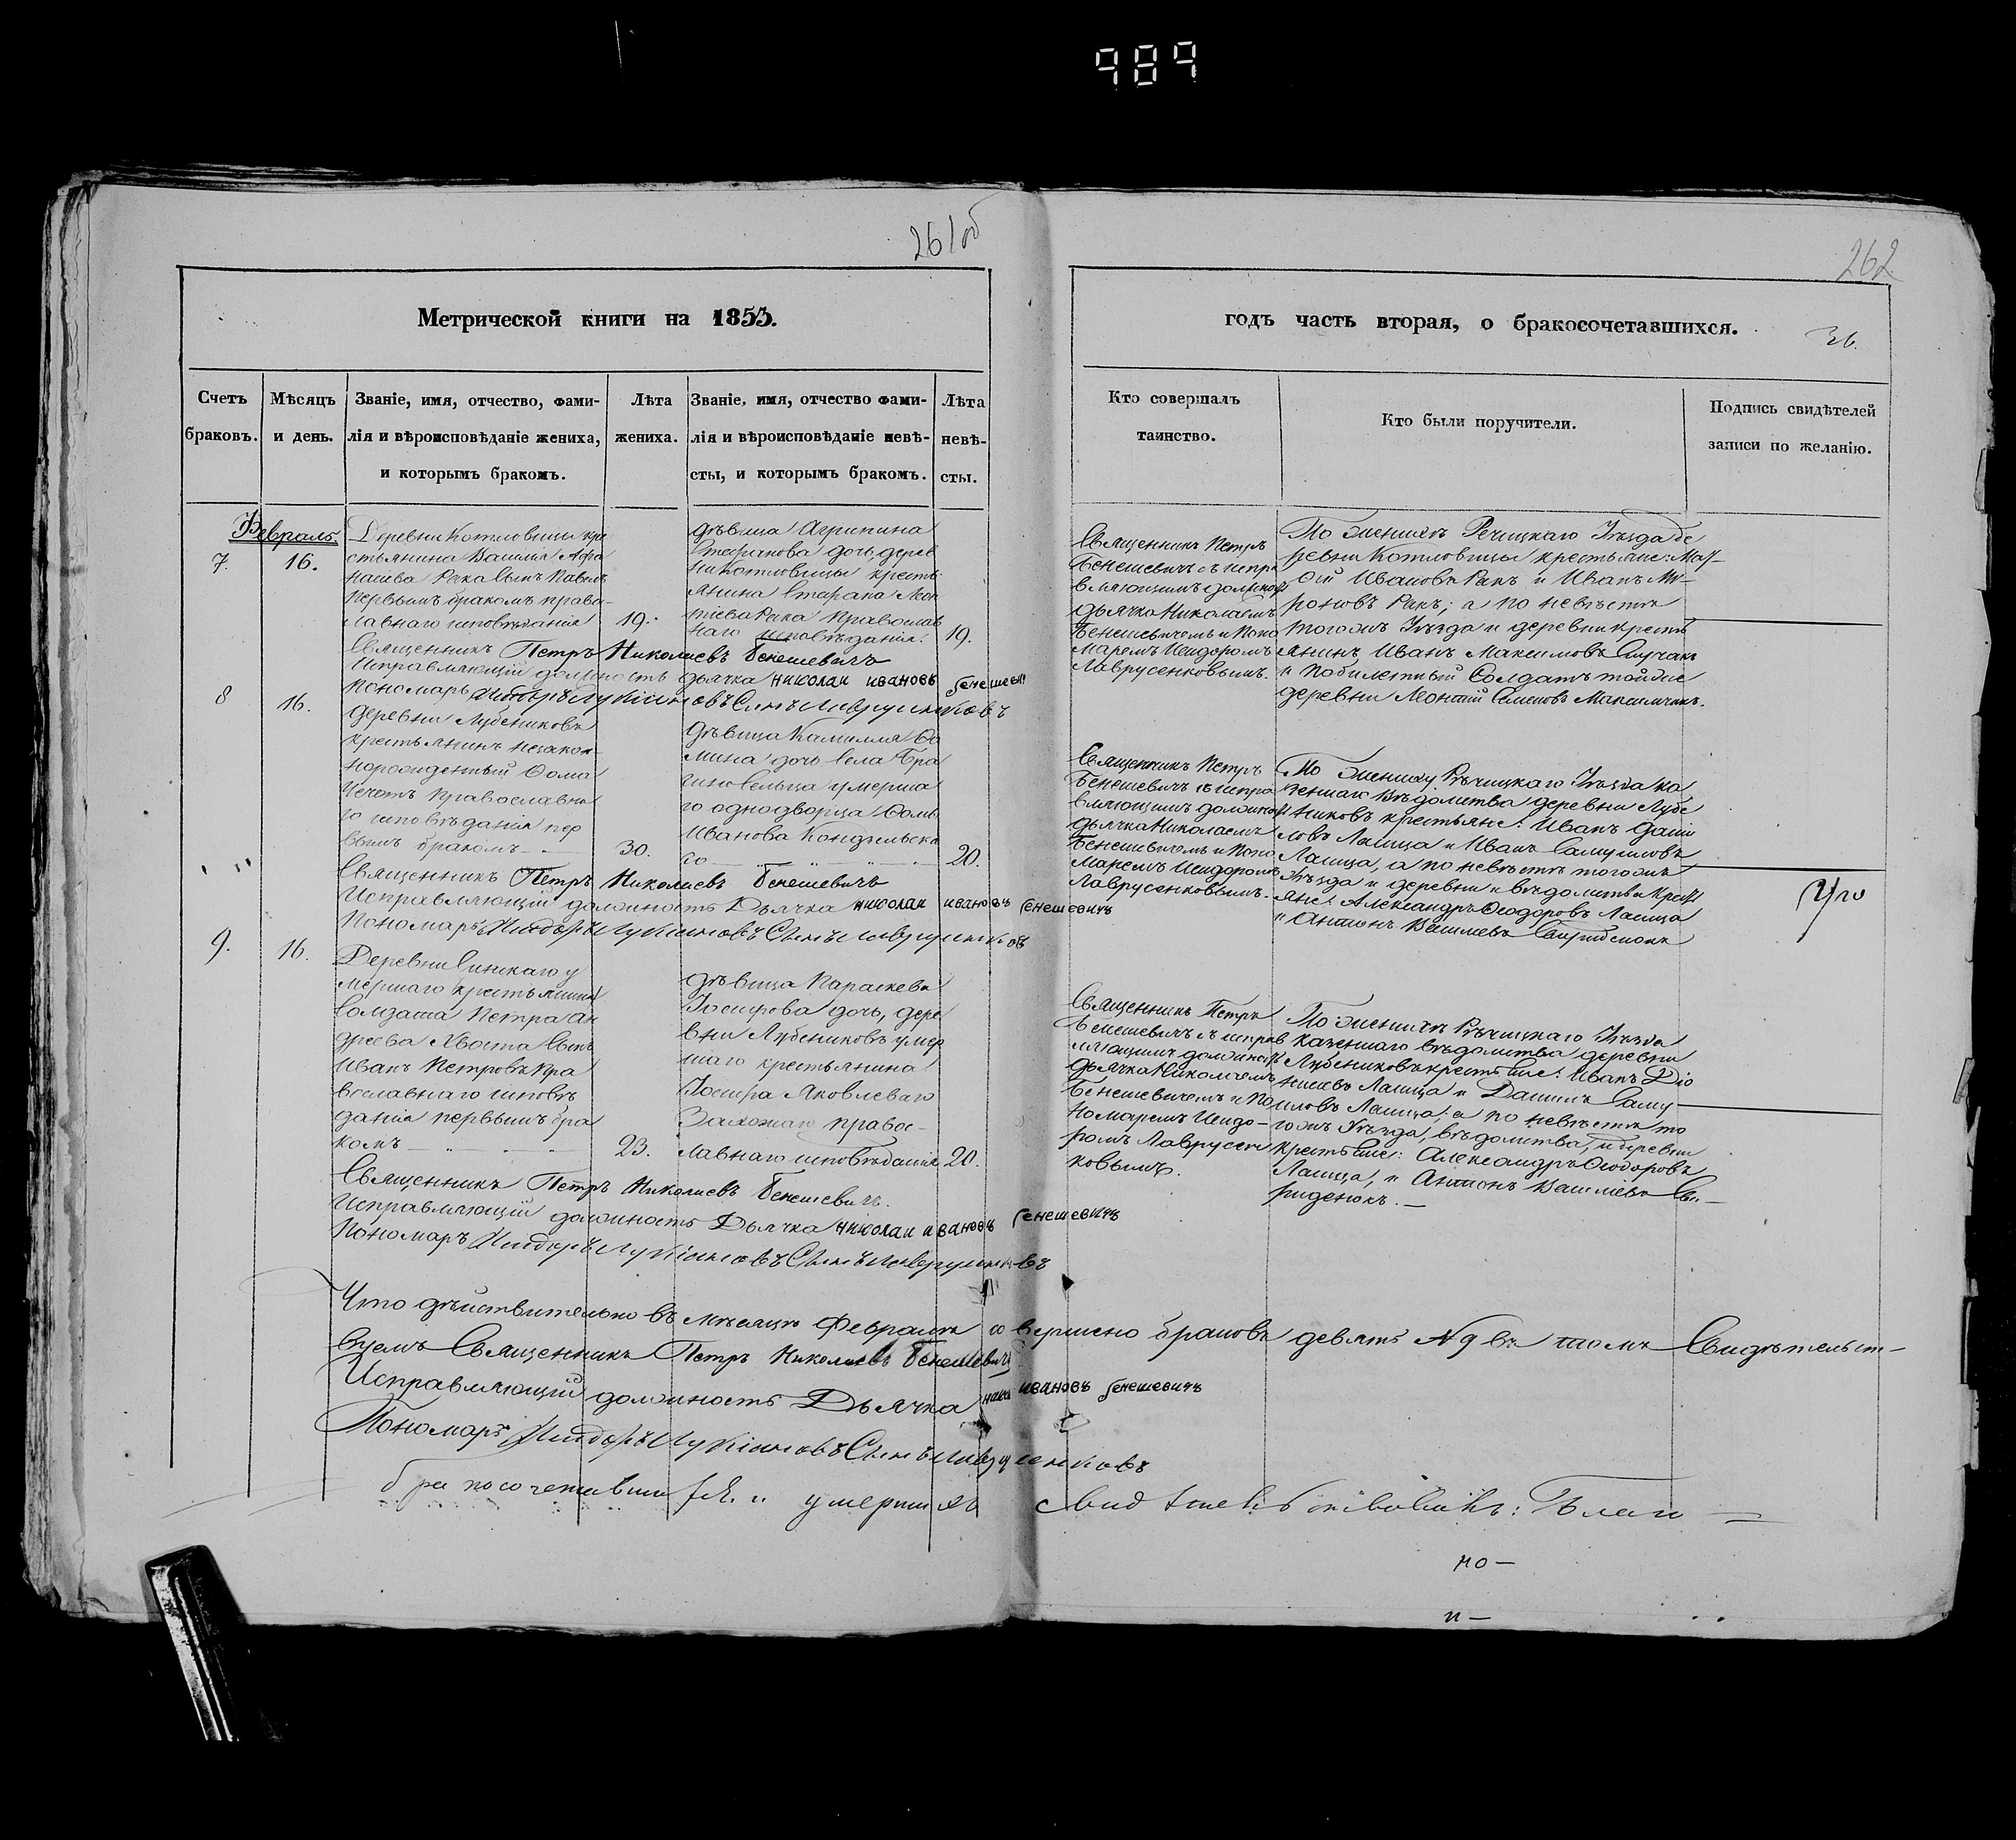 989
261 об
262
Метрической книги на 1855.
годъ часть вторая, о бракосочетавшихся.
36.
Счетъ браковъ.
Мѣсяцъ и день.
Званіе, имя, отчество, фами-
лія и вѣроисповѣданіе жениха,
и которымъ бракомъ.
Лѣта
жениха.
Званіе, имя, отчество фами-
лія и вѣроисповѣданіе невѣ-
сты, и которымъ бракомъ.
Лѣта
невѣ-
сты.
Кто совершалъ
таинство.
Кто были поручители.
Подпись свидѣтелей
записи по желанію.
Февраль
7.
16.
Деревни Котловицы кре
стьянина Василія Афа
насіева Рака сынъ Павелъ
первымъ бракомъ право-
славнаго исповѣданія
19.
дѣвица Агрипина
Стефанова дочь, дерев
ни Котловицы кресть
янина Стефана Леон
тіева Рака православ
наго исповѣданія.
19.
Священникъ Петръ
Бенешевичъ съ испра
вляющимъ должност
дьячка Николаемъ
Бенешевичемъ и Поно
маремъ Исидоромъ
Лаврусенковымъ.
По женихѣ Речицкаго Уѣзда де
ревни Котловицы крестьяне:
Ивановъ Ракъ и Иванъ Ми-
роновъ Ракъ; а по невѣстѣ
тогожъ Уѣзда и деревни кресть
янинъ Иванъ Максимовъ
и побилетный Солдатъ той же
деревни Леонтій Семеновъ Максимчикъ.
Священникъ Петръ Николаевъ Бенешевичъ
Исправляющій должность дьячка николаи ивановъ бенешевич
Пономаръ Исидоръ Лукіановъ Сынъ Лаврусенковъ
8
16.
деревни Лубениковъ
крестьянинъ незакон-
норожденный Фома
Нечетъ Православна
го исповѣданія пер
вымъ бракомъ
30.
дѣвица Камилля Фо
мина дочь села Бра
гино Сельца умерша
го однодворца Фомы
Иванова Кондзельска
го
20.
Священникъ Петръ
Бенешевичъ съ испра
вляющимъ должност
дьячка Николаемъ
Бенешевичемъ и Поно
маремъ Исидоромъ
Лаврусенковымъ.
По Жениху Рѣчицкаго Уѣзда ка
зеннаго Вѣдомства деревни Лубе
никовъ крестьяне: Иванъ Дани
ловъ Лапица и Иванъ Самуиловъ
Лапица, а по невѣстѣ тогожъ
Уѣзда и деревни и вѣдомства крест
яне: Александръ Феодоровъ Лапица
и Антонъ Василевъ Свириденокъ
Священникъ Петръ Николаевъ Бенешевичъ
Исправляющій должность Дьячка николаи ивановъ бенешевичъ
Пономаръ Исидоръ Лукіановъ Сынъ Лаврусенковъ
9.
16.
Деревни Синскаго у
мершаго крестьянина
Солдата Петра Ан
дреева Хвоста сынъ
Иванъ Петровъ Пра
вославнаго исповѣ
данія первымъ бра
комъ
23.
дѣвица Параскева
Іосифова дочь, дере
вни Лубениковъ умер
шаго крестьянина
Іосифа Яковлеваго
правос-
лавнаго исповѣданія
20.
Священникъ Петръ
Бенешевичъ съ исправ
ляющимъ должность
дьячка Николаемъ
Бенешевичемъ и По
номаремъ Исидо-
ромъ Лаврусен
ковымъ.
По женихѣ Рѣчицкаго Уѣзда
казеннаго вѣдомства деревни
Лубениковъ крестьяне: Иванъ Діо
нисіевъ Лапица и Даніилъ Саму
иловъ Лапица; а по невѣстѣ то
гожъ Уѣзда, вѣдомства, и деревни
крестьяне: Александръ Феодоровъ
Лапица, и Антонъ Василевъ Сви-
риденокъ.
Священникъ Петръ Николаевъ Бенешевичъ.
Исправляющій должность Дьячка николаи ивановъ бенешевичъ
Пономаръ Исидоръ Лукіановъ Сынъ Лаврусенковъ
Что дѣйствительно въ мѣсяцѣ Февралѣ совершено браковъ девять №9 въ томъ Свидѣтельст-
вуемъ Священникъ Петръ Николаевъ Бенешевичъ
Исправляющій должность Дьячка никол ивановъ бенешевичъ
Пономаръ Исидоръ Лукіановъ Сынъ Лаврусенковъ